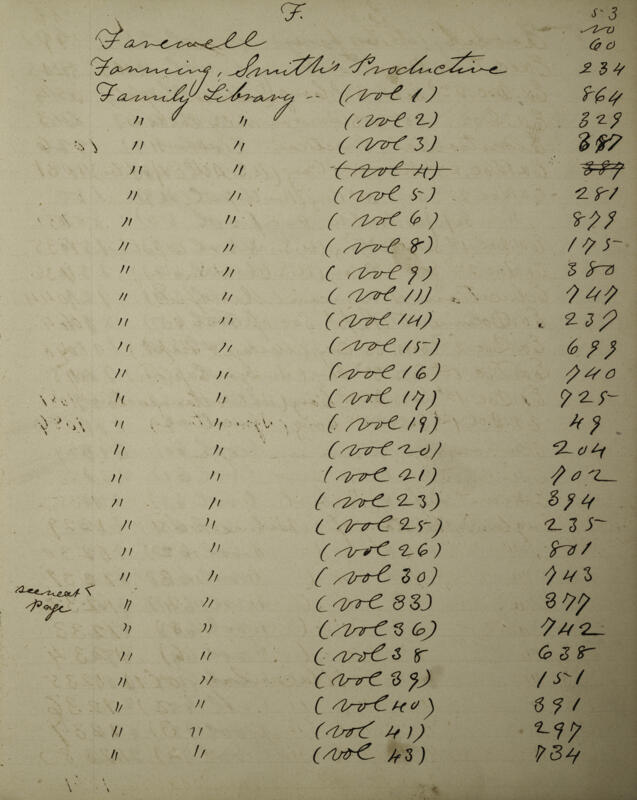 F.
53
Farewell 60
Farming, Smith's Productive 234
Family Library -- (vol 1) 864
" " (vol 2) 329
" " (vol 3) 387
" " (vol 4) 387
" " (vol 5) 281
" " (vol 6) 879
" " (vol 8) 175
" " (vol 9) 380
" " (vol 11) 747
" " (vol 14) 237
" " (vol 15) 699
" " (vol 16) 740
" " (vol 17) 725
" " (vol 19) 49
" " (vol 20) 204
" " (vol 21) 702
" " (vol 23) 394
" " (vol 25) 235
" " (vol 26) 801
" " (vol 30) 743
see next page
" " (vol 33) 377
" " (vol 36) 742
" " (vol 38 638
" " (vol 39) 151
" " (vol 40) 391
" " (vol 41) 297
" " (vol 43) 734